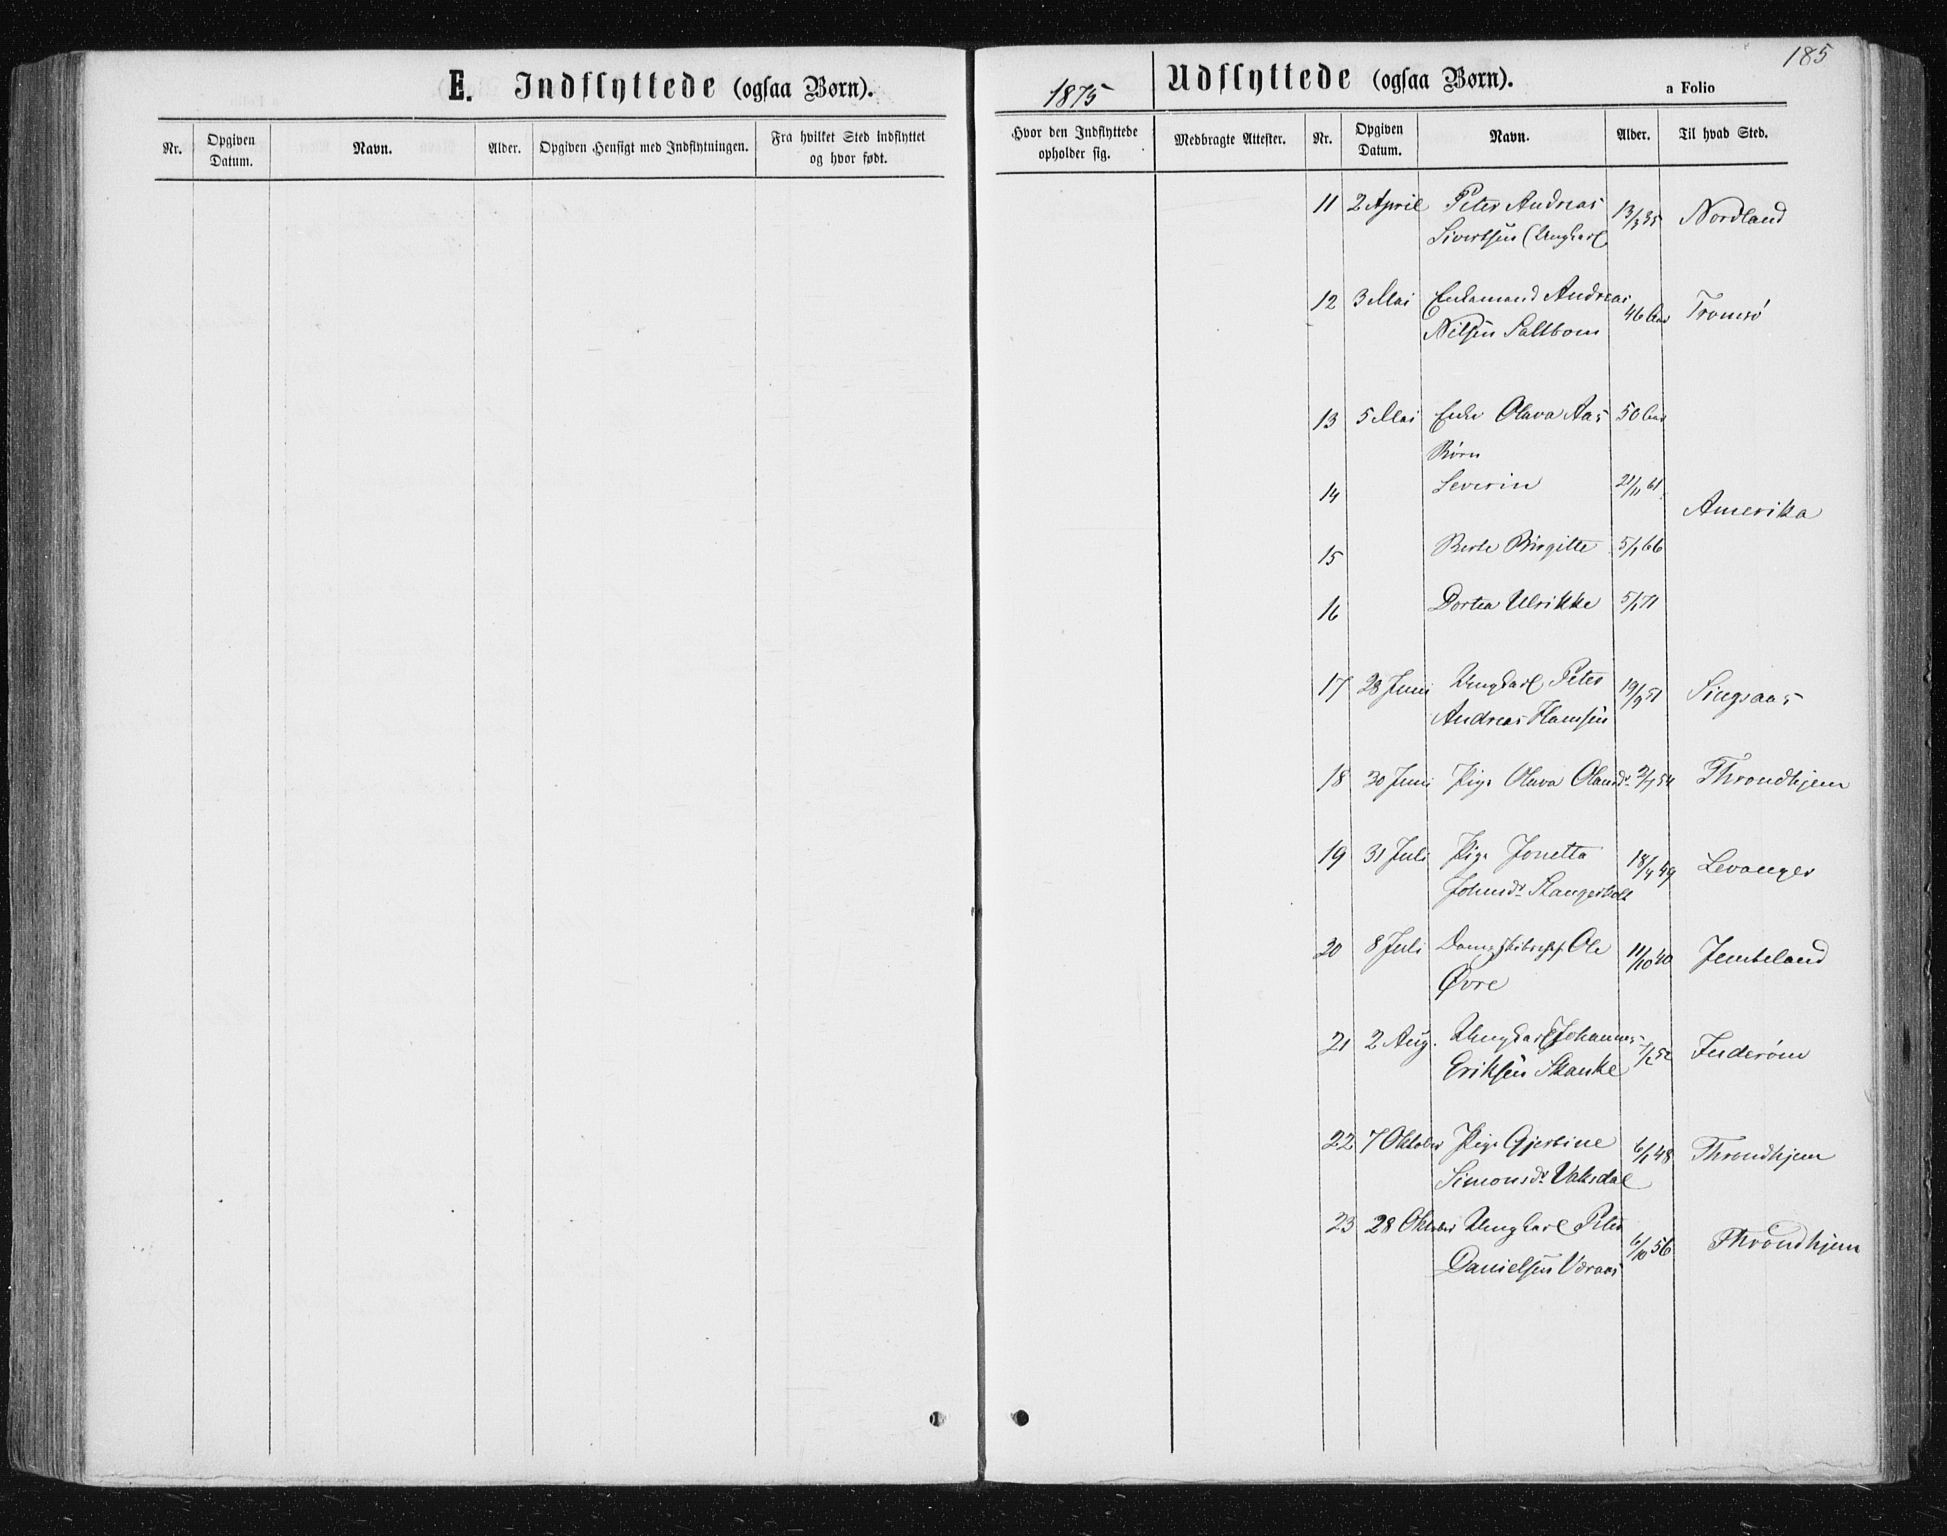 185
E. Indflyttede (ogsaa Børn).
1875
Udflyttede (ogsaa Børn).
a Folio
Nr.
Opgiven Datum.
Navn.
Alder.
Opgiven Hensigt med Indflytningen.
Fra hvilket Sted indflyttet og hvor født.
Hvor den Indflyttede opholder sig.
Medbragte Attester.
Nr.
Opgiven Datum.
Navn.
Alder.
Til hvad Sted.
11 2 April Peter Andreas 13/3 35 Nordland
Sivertsen (Ungkarl
12 3 Mai Enkemand Andreas 46 Aar Tromsø
Nilsen Saltbom
13 5 Mai Enke Olava Aas 50 Aar
Børn
14 Severin 21/11 61
Amerika
15 Berte Birgitte 5/1 66
16 Dortea Ulrikke 5/1 71
17 28 Juni Ungkarl Peter 19/9 51 Singsaas
Andreas Hansen
18 30 Juni Pige Olava Olausdr 2/1 54 Throndhjem
19 31 Juli Pige Jonetta 18/4 49 Levanger
Johnsdr Stangerholt
20 8 Juli Ole 11/10 40 Jemteland
Øvre
21 2 Aug. Ungkarl Johannes Inderøen
Eriksen Skanke
22 7 Oktober Pige Gjertine 6/1 48 Throndhjem
Simonsdr Vaksdal
23 28 Oktober Ungkarl Peter 6/10 56 Throndhjem
Danielsen Veraas